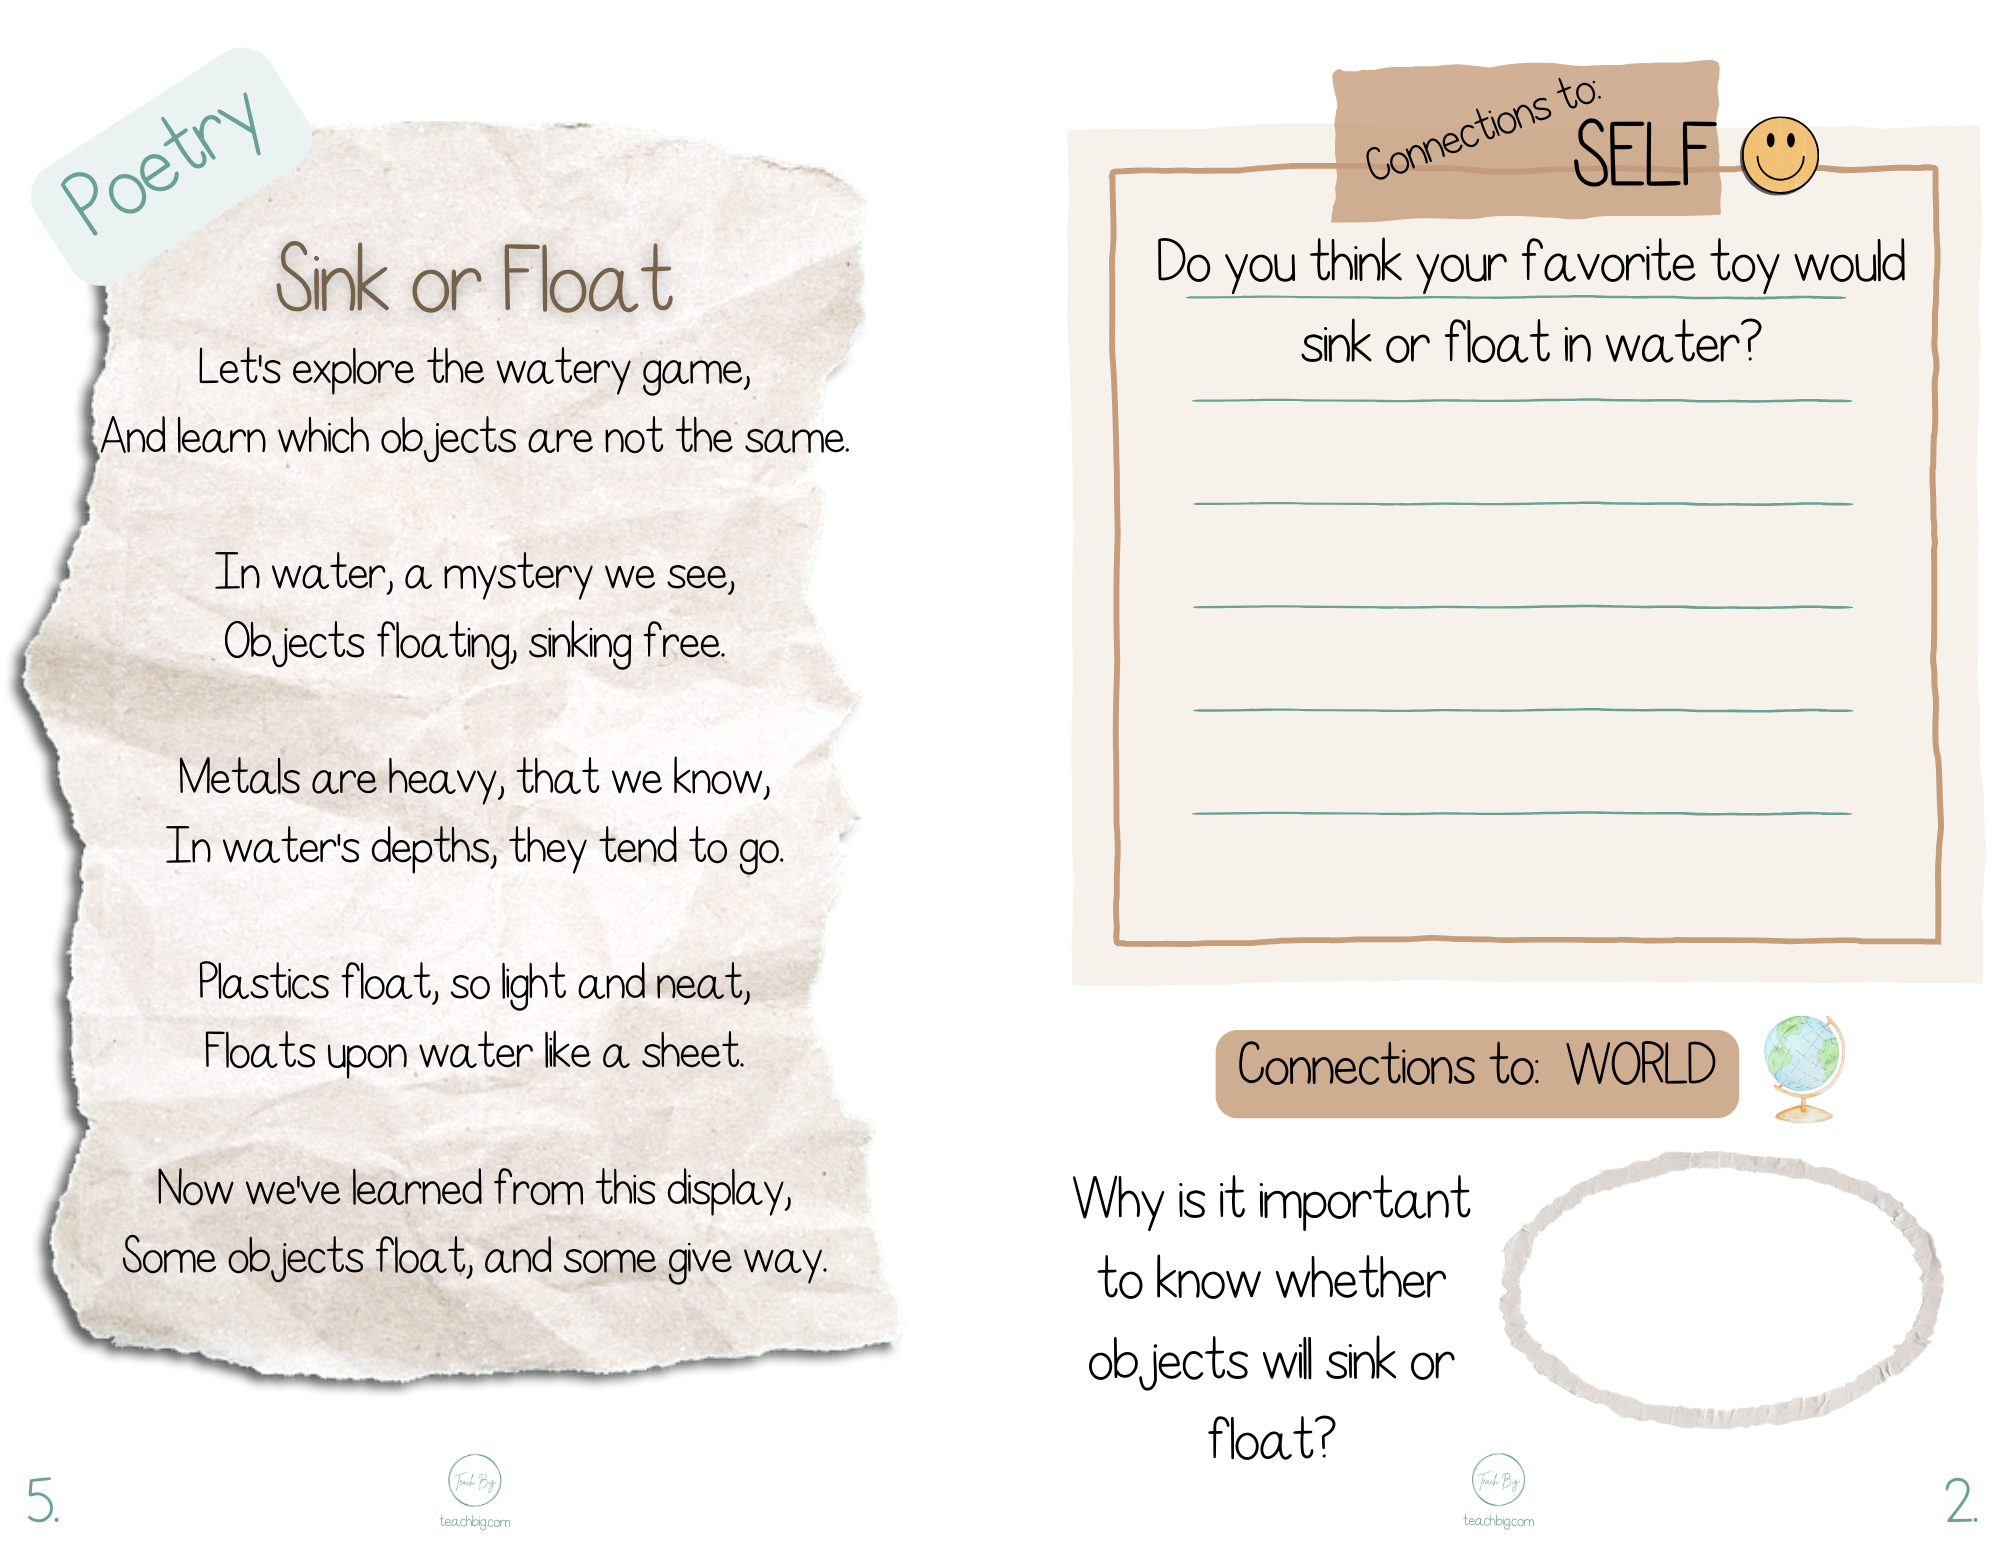 Poetry
Sink or Float
Let's explore the watery game,
And learn which objects are not the same.
In water, a mystery we see,
Objects floating, sinking free.
Metals are heavy, that we know,
In water's depths, they tend to go.
Plastics float, so light and neat,
Floats upon water like a sheet.
Now we've learned from this display,
Some objects float, and some give way.
5.
Teach Big
teachbig.com
Connections to:
SELF
Do you think your favorite toy would
sink or float in water?
Connections to: WORLD
Why is it important
to know whether
objects will sink or
float?
Teach Big
teachbig.com
2.